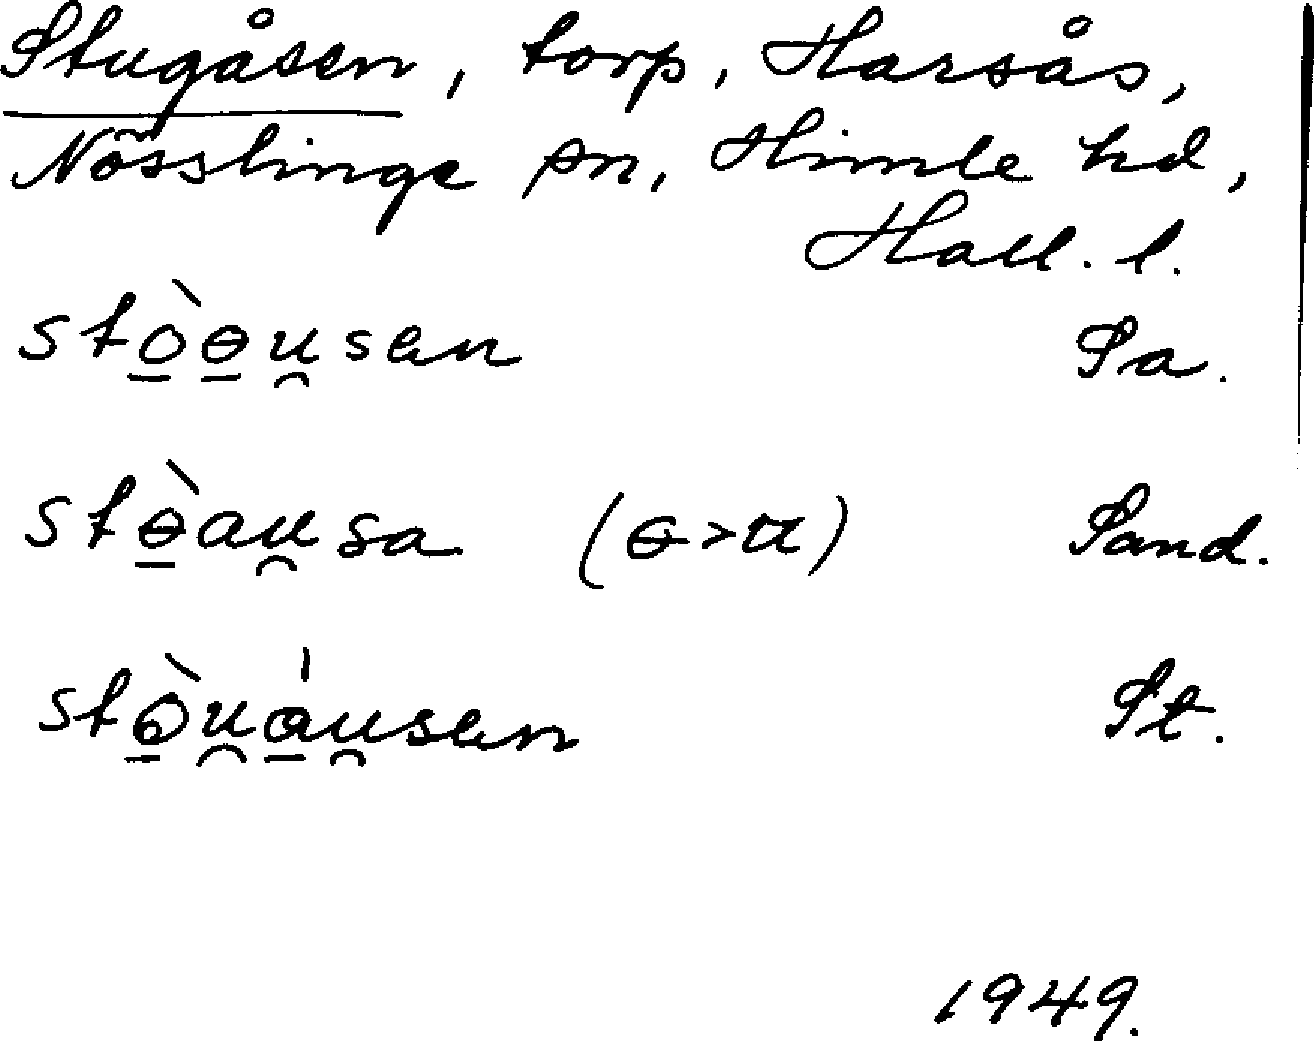 Stugåsen, torp, Harsås,
Nösslinge sn, Himle hd,
Hall. l.
stò̱ɵ̱u̯sen Sa.
stɵ̱̀au̯sa (ɵ>u) Sand.
stò̱u̯á̱u̯sen St.
1949.